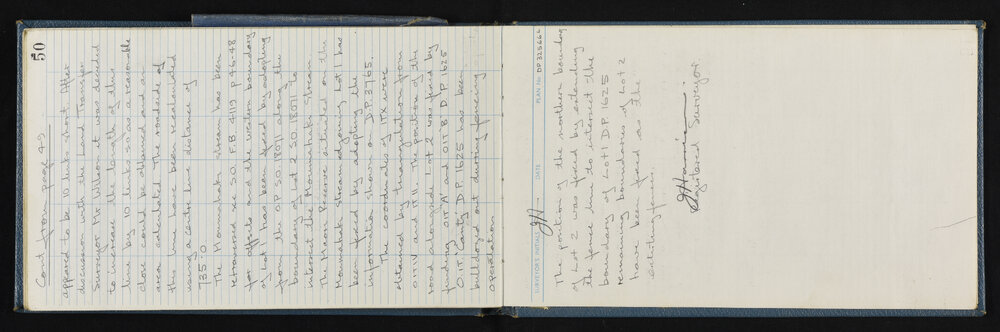 50
Cont from page 49
appeared to be 10 links short. After
discussion with the Land Transfer
Surveyor Mr Wilson it was decided
to increase the length of this
line by 10 links so a reasonable
close could be obtained and an
area calculated. The roadside of
this line have been recalculated
using a centre line distance of
735.0
The Moumahaki stream has been
retraversed see S.O. F.B. 4119 p 46-48
for offsets and the western boundary
of Lot 1 has been fixed by adopting
from the O.P. S.O. 18071 along the
boundary of Lot 2 S.O. 18071 to
intersect the Moumahaki Stream
The Maori Reserve situated on the
Moumahaki Stream adjoining Lot 1 has
been fixed by adopting the
information shown on D.P. 3765.
The coordinates of ITX were
obtained by triangulation from
OITIV and IT II. The position of the
road alongside Lot 2 was fixed by
finding OIT A and OIT B D.P. 1625
O.IT. 'Canty' D.P. 1625 has been
bulldozed out during fencing
operation
SURVEYOR'S INITIALS
DATE
PLAN No. DP.325662
The position of the northern boundary
of Lot 2 was fixed by extending
the fence line to intersect the
boundary of Lot 1 D.P. 1625
remaining boundaries of Lot 2
have been fixed as the
existing fences.
Registered Surveyor